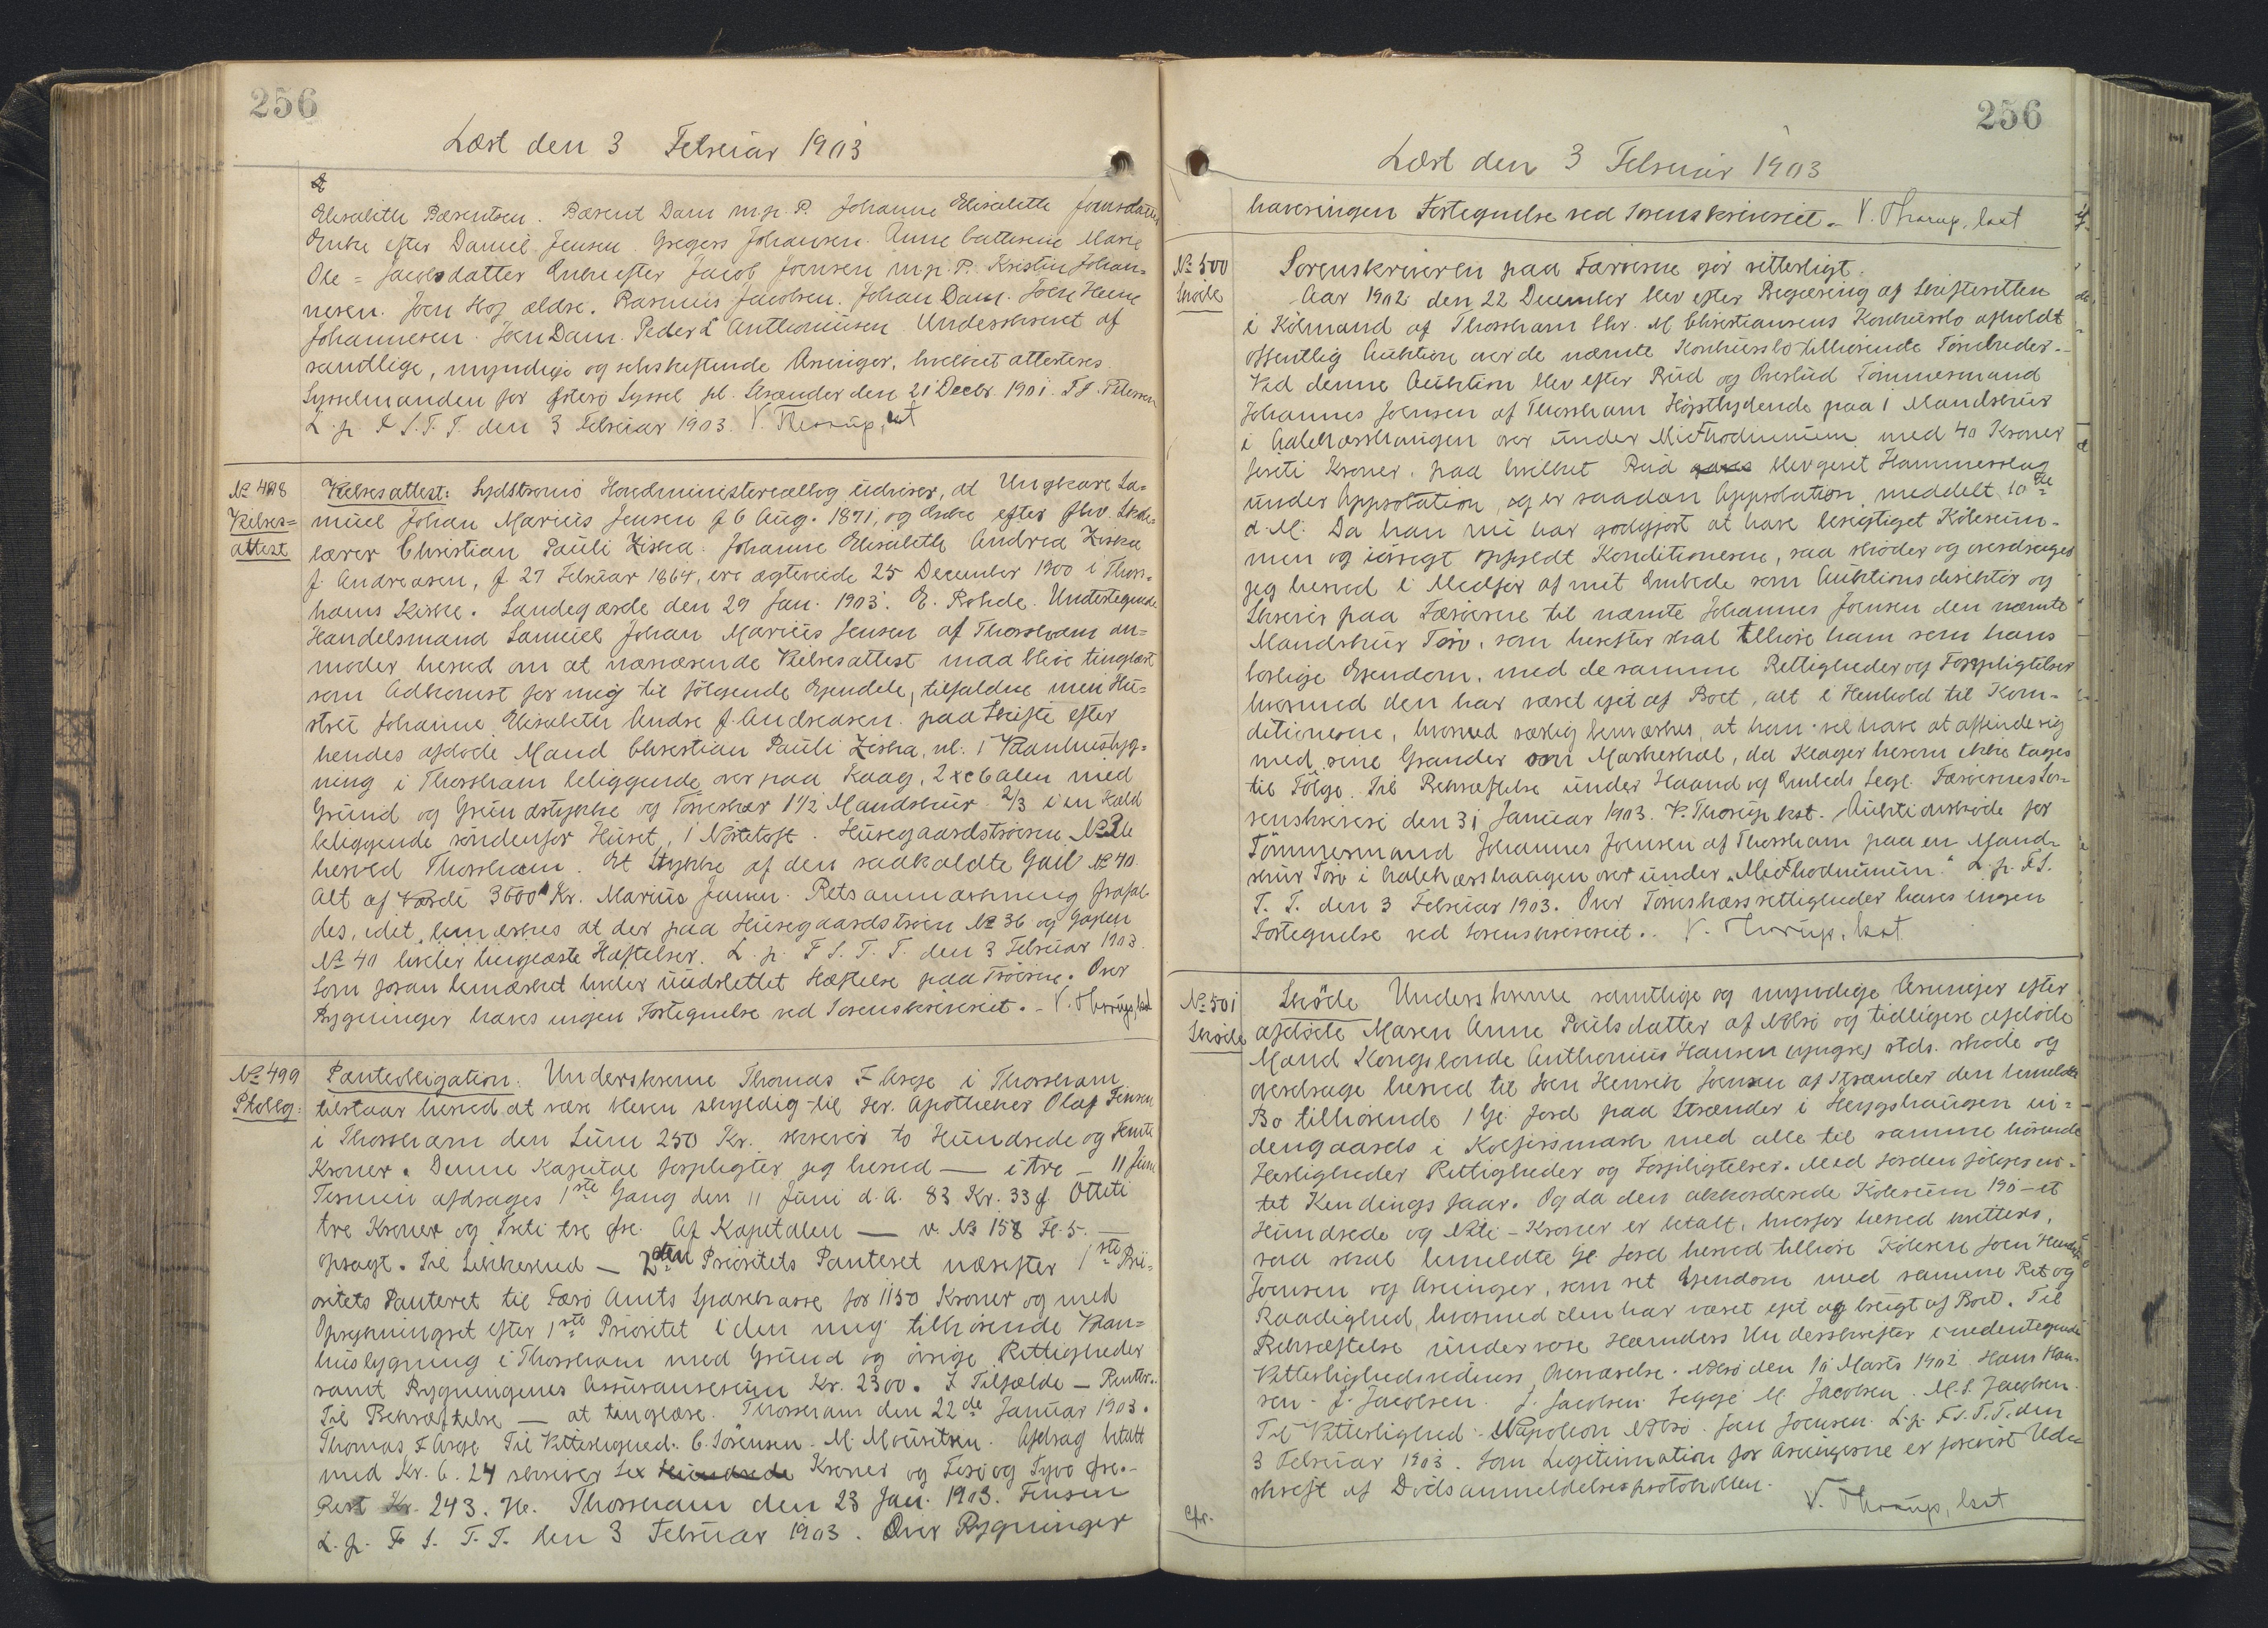 256
Læst den 3 Februar 1903
Elisabeth Bærentsen. Bærent Dam m. p. P. Johanne Elisabeth Joensdatter
Enke efter Daniel Jensen. Gregers Johansen. Anne Cathrine Marie
Ole = Jacobsdatter Enke efter Jacob Joensen m. p. P. Kristin Johan-
nesen. Joen Høj ældre. Rasmus Jacobsen. Johan Dam. Joen Hene
Johannesen. Joen Dam. Peder L Anthoniusen Underskrevet af
samtlige, myndige og selvskiftende Arvinger, hvilket attesteres
Sysselmanden for Østerø Syssel pt. Strænder den 21 Decbr. 1901. F. F. Petersen
L. p. F S. T. T. den 3 Februar 1903. V. Thorup, kst
№ 498
Vielses=
attest
Vielsesattest: Sydstrømø Hovedministerialbog udviser, at Ungkarl Sa-
muel Johan Marius Jensen f 6 Aug. 1871, og Enke efter fhv. Skole-
lærer Christian Pauli Ziska. Johanne Elisabeth Andrea Ziska
f. Andreasen, f 27 Februar 1864, ere ægteviede 25 December 1900 i Thors-
havns Kirke. Sandegærde den 29 Jan. 1903. E. Rohde. Undertegnede
Handelsmand Samuel Johan Marius Jensen af Thorshavn an-
moder herved om at nærværende Vielsesattest maa blive tinglæst
som Adkomst for mig til følgende Ejendele, tilfaldne min Hu-
stru Johanne Elisabeth Andre f. Andreasen. paa Skifte efter
hendes afdøde Mand Christian Pauli Ziska, nl. 1 Vaanhusbyg-
ning i Thorshavn beliggende over paa Kaag, 2 x 6 alen med
Grund og Grundstykke og Tørveskær 1½ Mandskur 2/3 i en Kald
beliggende søndenfor Huset, i Nøstetoft. Husegaardstrøerne № 36
herved Thorshavn. Et Stykke af den saakaldte Gail № 40.
Alt af Værdi 3600 Kr. Marius Jensen. Retsanmærkning frafal-
des, idet bemærkes at der paa Husegaardstrøen № 36 og Gajlen
№ 40 hviler tinglæste Hæftelser. L. p. F S. T. T. den 3 Februar 1903.
Som foran bemærket hviler uudslettet Hæftelse paa Trøerne. Over
Bygninger haves ingen Fortegnelse ved Sorenskriveriet. - V. Thorup, kst
№ 499
Ptoblg:
Panteobligation. Underskrevne Thomas F Arge i Thorshavn
tilstaar herved at være bleven skyldig til Hr. Apotheker Olaf Finsen
i Thorshavn den Sum 250 Kr. skriver to Hundrede og Femti
Kroner. Denne Kapital forpligter jeg herved — i tre — 11 Juni
Termin afdrages 1ste Gang den 11 Juni d. A. 83 Kr. 33 ø. Otteti
tre Kroner og Treti tre Øre. Af Kapitalen — v. № 158 Fl. 5. —
opsagt. Til Sikkerhed — 2den Prioritets Panteret næsefter 1ste Pri-
oritets Panteret til Færø Amts Sparekasse for 1150 Kroner og med
Oprykningsret efter 1ste Prioritet i den mig tilhørende Vaan-
husbygning i Thorshavn med Grund og øvrige Rettigheder
samt Bygningernes Assurancesum Kr. 2300. I Tilfælde — Renter.
Til Bekræftelse — at tinglæse. Thorshavn den 22de Januar 1903.
Thomas F Arge Til Vitterlighed: C. Sørensen. M. Mouritsen. Afdrag betalt
med Kr. 6. 24 skriver Sex Hundrede Kroner og Fire og Tyve Øre.-
Rest Kr. 243. 76. Thorshavn den 23 Jan. 1903. Finsen
L. p. F S. T. T. den 3 Februar 1903. Over Bygninger
256
Læst den 3 Februar 1903
haves ingen Fortegnelse ved Sorenskriveriet. V. Thorup, kst
№ 500
Skøde
Sorenskriveren paa Færøerne gør vitterligt.
Aar 1902 den 22 December blev efter Begæring af Skifteretten
i Købmand af Thorshavn Chr. M Christiansens Konkursbo afholdt
offentlig Auktion over de nævnte Konkursbo tilhørende Tørvbreder.
Ved denne Auktion blev efter Bud og Overbud Tømmermand
Johannes Joensen af Thorshavn Højstbydende paa 1 Mandskur
i Aalekærshaugen over under Midhodnunum med 40 Kroner
forti Kroner. paa hvilket Bud blev givet Hammerslag
under Approbation, og er saadan Approbation meddelt 10de
d. M. Da han nu har godtgjort at have berigtiget Købesum-
men og iøvrigt opfyldt Konditionerne, saa skøder og overdrager
jeg herved i Medfør af mit Embede som Auktionsdirektør og
Skriver paa Færøerne til nævnte Johannes Joensen den nævnte
Mandskur Tørv, som herefter skal tilhøre ham som hans
lovlige Ejendom, med de samme Rettigheder og Forpligtelser
hvormed den har været ejet af Boet, alt i Henhold til Kon-
ditionerne, hvorved særlig bemærkes, at han vil have at affinde sig
med sine Grander om Markeskæl, da Klager herom ikke tages
til Følge. Til Bekræftelse under Haand og Embeds Segl. Færøernes So-
renskriveri den 31 Januar 1903. V. Thorup kst. Auktionsskøde for
Tømmermand Johannes Joensen af Thorshavn paa en Mand-
skur Tørv i Aalekærshaagen over under „Midhodnunum". L. p. F. S.
T. T. den 3 Februar 1903. Over Tørveskærsrettigheder haves ingen
Fortegnelse ved Sorenskriveriet. V. Thorup, kst
№ 501
Skøde
Skøde Underskrevne samtlige og myndige Arvinger efter
afdøde Maren Anne Poulsdatter af Nolsø og tidligere afdøde
Mand Kongsbonde Anthonius Hansen (yngre) stds. skøde og
overdrage herved til Joen Henrik Joensen af Strænder den bemeldte
Bo tilhørende 1 Gl. Jord paa Strænder i Heygshaugen in-
dengaards i Kolfirsmark med alle til samme hørende
Herligheder Rettigheder og Forpligtelser. Med Jorden følger in-
tet Kendings Faar. Og da den akkorderede Købesum 190 - et
Hundrede og Niti - Kroner er betalt, hvorfor herved kvitteres,
saa skal bemeldte Gl. Jord herved tilhøre Køberen Joen Henrik
Joensen og Arvinger, som ret Ejendom med samme Ret og
Raadighed, hvormed den har været ejet og brugt af Boet. Til
Bekræftelse under vore Hænders Underskrifter i nedentegnede
Vitterlighedsvidners Overværelse. Nolsø den 10 Marts 1902. Hans Han-
sen. J. Jacobsen. J. Jacobsen. Sigge M. Jacobsen. M. S. Jacobsen.
Til Vitterlighed. Napoleon Nolsø. Jan Joensen. L. p. F. S. T. T. den
3 Februar 1903. Som Legitimation for Arvingerne er forevist Ud-
skrift af Dødsanmeldelsesprotokollen.
V. Thorup, kst
Cfr.